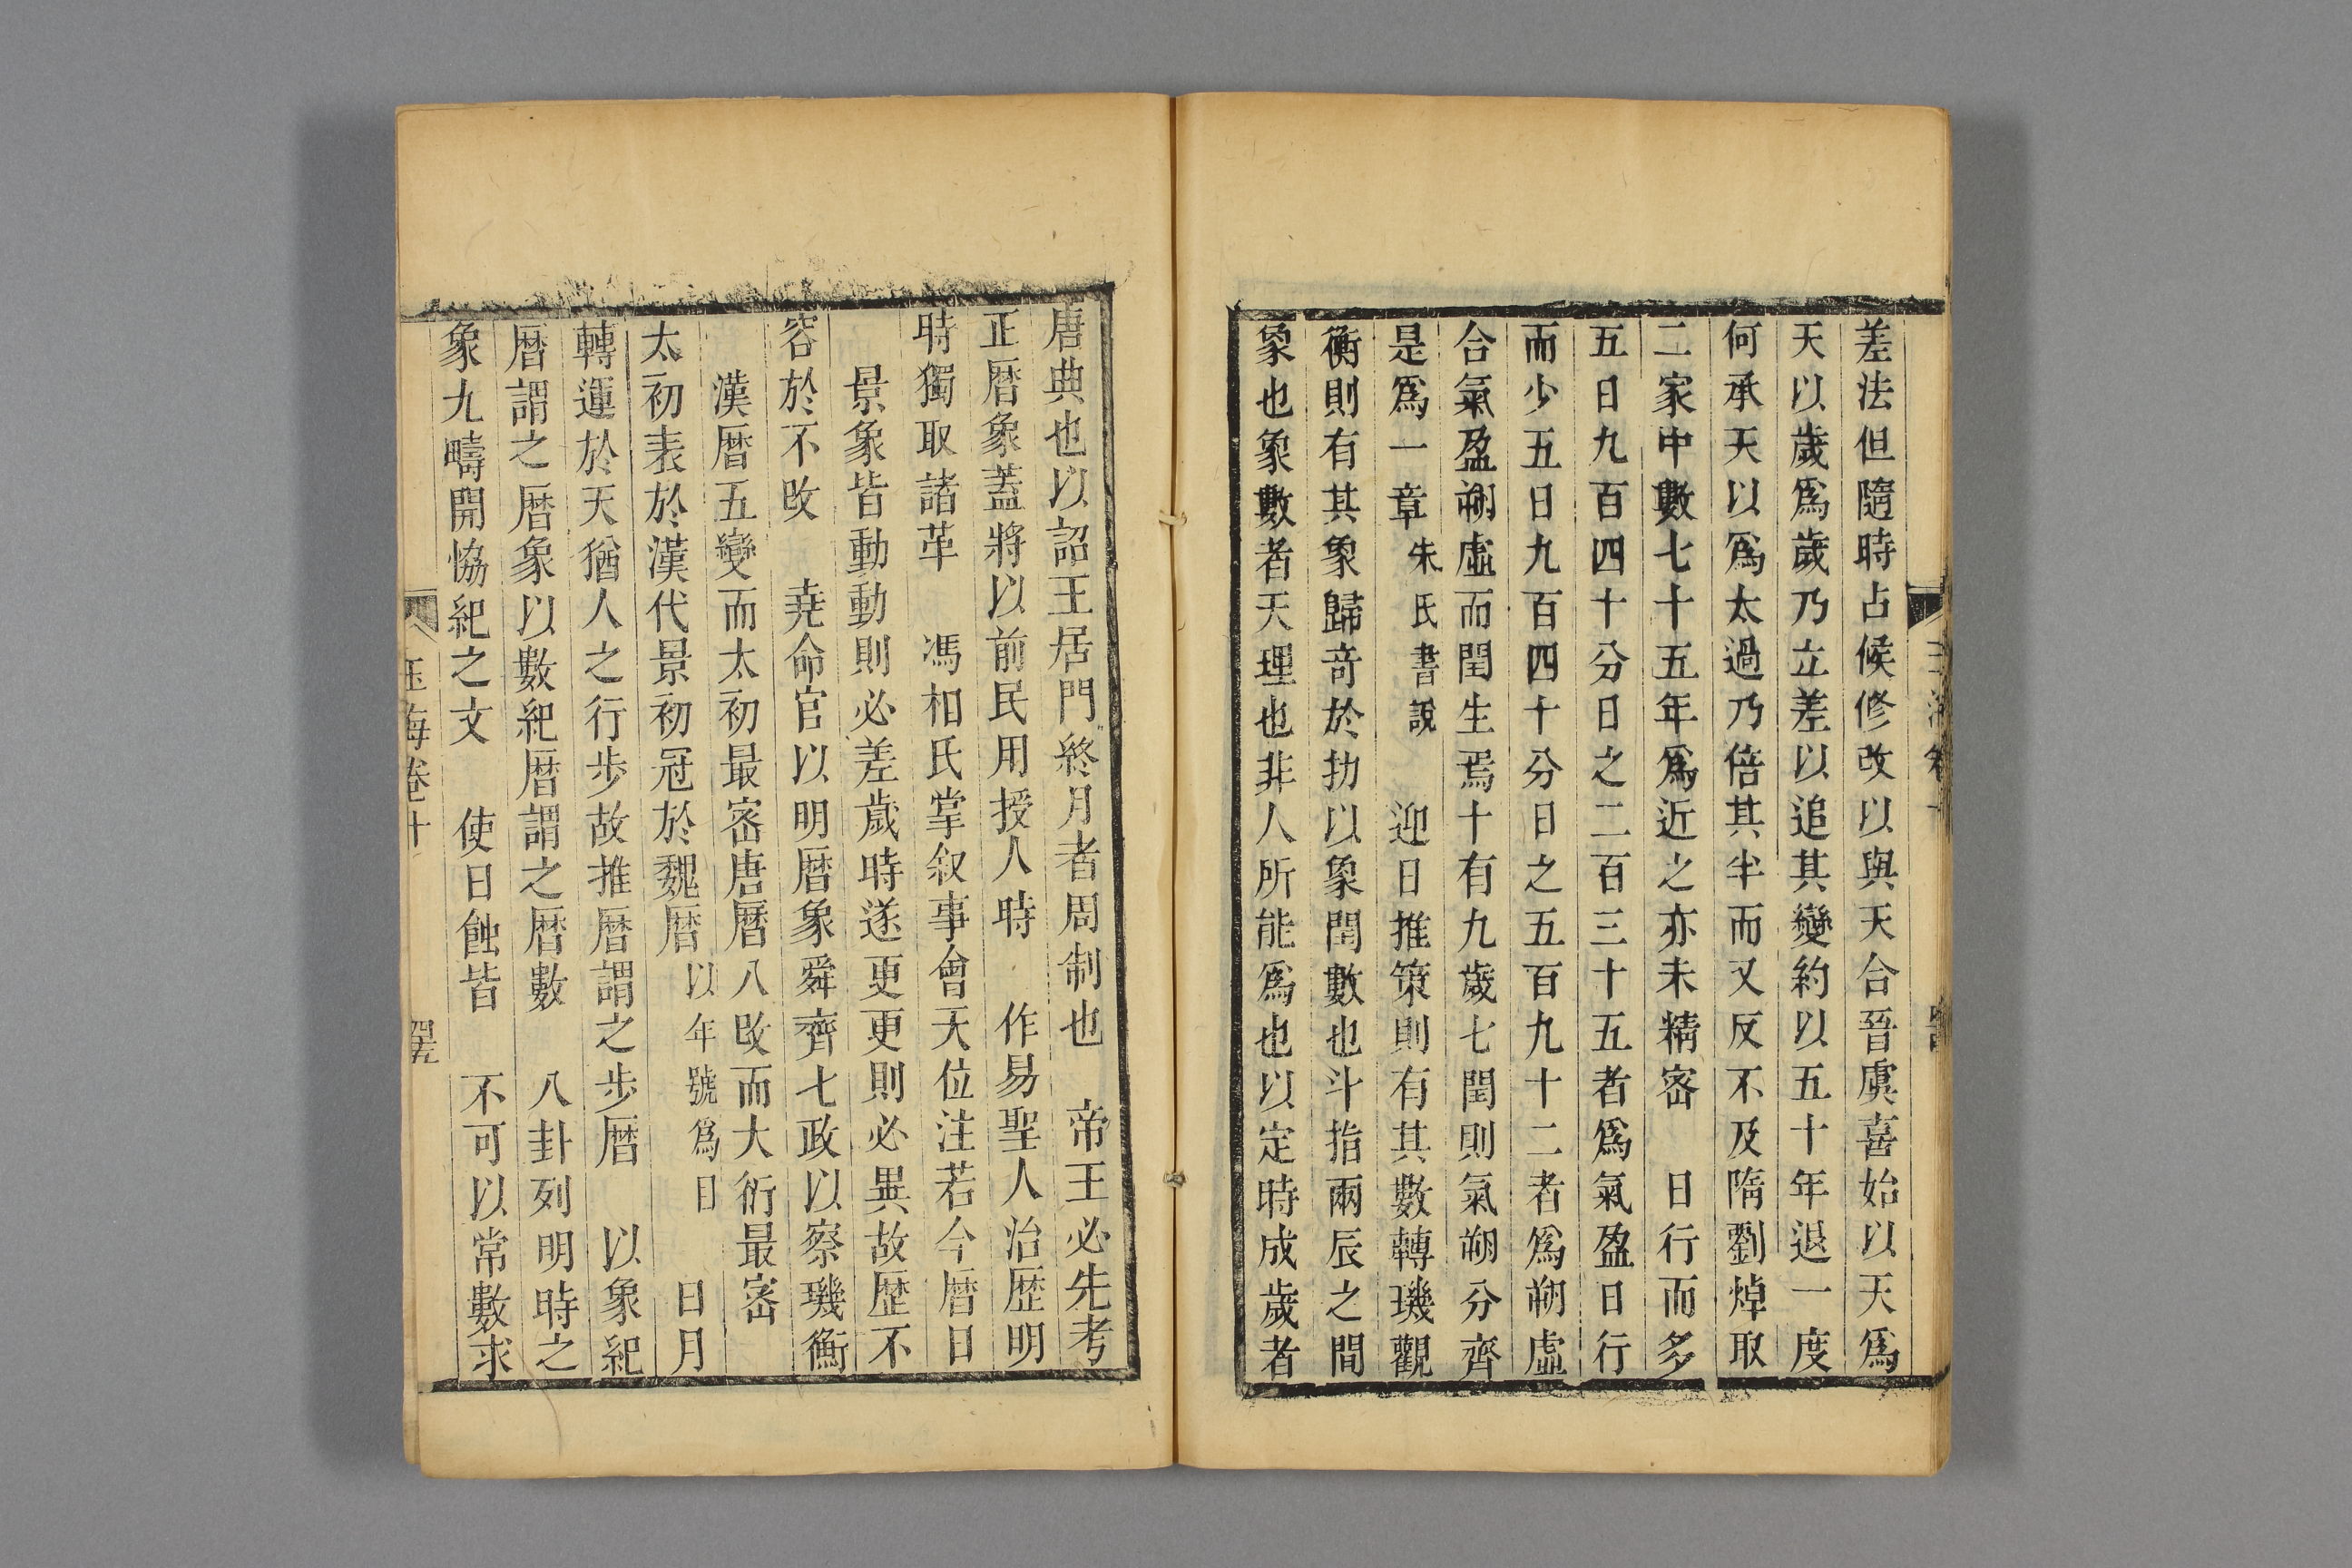 差法但隨時占候修改以與天合晉虞喜始以天爲
天以歲爲歲乃立差以追其變約以五十年退一度
何承天以爲太過乃倍其半而又反不及隋劉焯取
二家中數七十五年爲近之亦未精宻　日行而多
五日九百四十分日之二百三十五者爲氣盈日行
而少五日九百四十分日之五百九十二者爲朔虛
合氣盈朔虛而閏生焉十有九歲七閏則氣朔分齊
是爲一章朱氏書說　迎日推策則有其數轉璣觀
衡則有其象歸奇於扐以象閏數也斗指兩辰之間
象也象數者天理也非人所能爲也以定時成歲者
唐典也以詔王居門終月者周制也　帝王必先考
正曆象蓋將以前民用授人時　作易聖人治歴明
時獨取諸革　馮相氏掌叙事會天位注若今曆日
景象皆動動則必差歲時遂更更則必異故歴不
容於不改　堯命官以明曆象舜齊七政以察璣衡
漢曆五變而太初最宻唐曆八改而大衍最宻
太初表於漢代景初冠於魏曆以年號爲目　日月
轉運於天猶人之行步故推曆謂之步曆　以象紀
曆謂之曆象以數紀曆謂之曆數　八卦列明時之
象九疇開恊紀之文　使日蝕皆　不可以常數求
玉海卷十